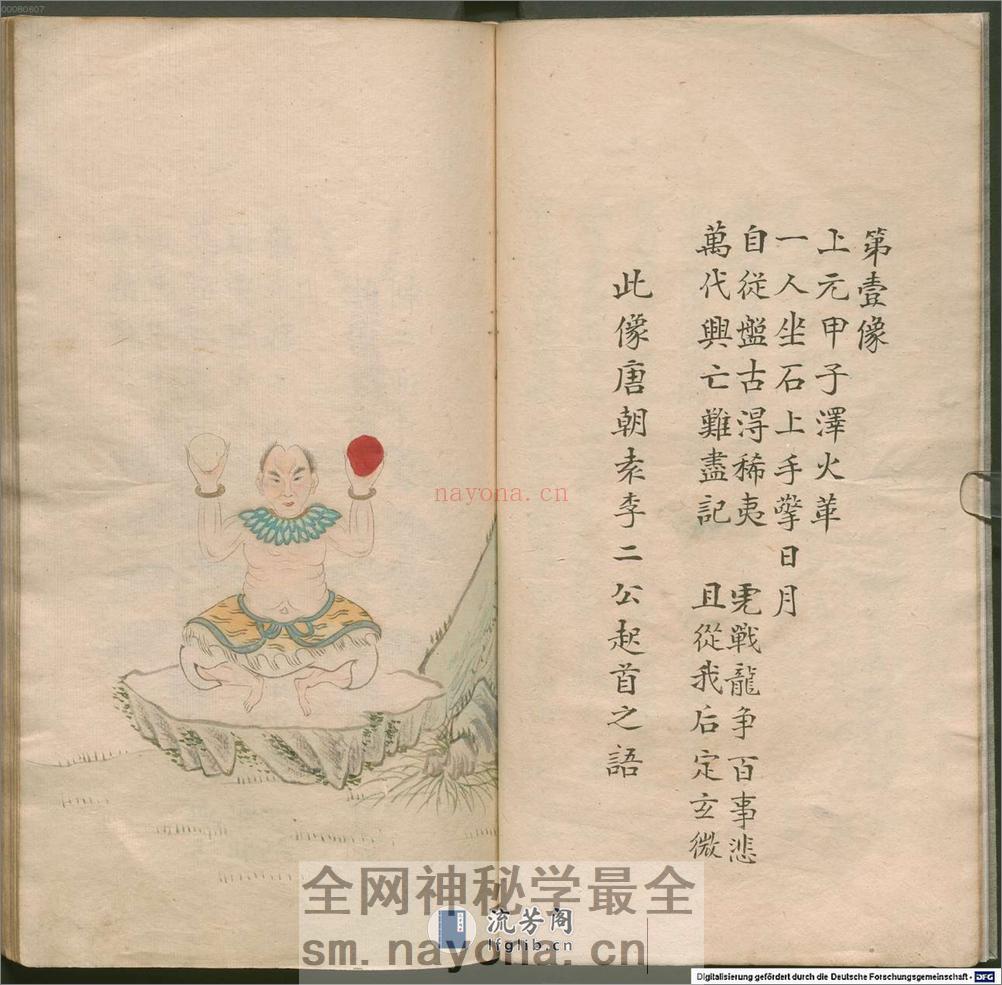 00080607
第壹像
上元甲子澤火革
一人坐石上手擎日月
自從盤古淂稀夷　兎戰龍争百事悲
萬代興亡難盡記　且從我后定玄微
此像唐朝袁李二公起首之語
nayona.cn
全网神秘学最全
流芳阁
lfglib.cn
sm.nayona.cn
Digitalisierung gefördert durch die Deutsche Forschungsgemeinschaft - DFG